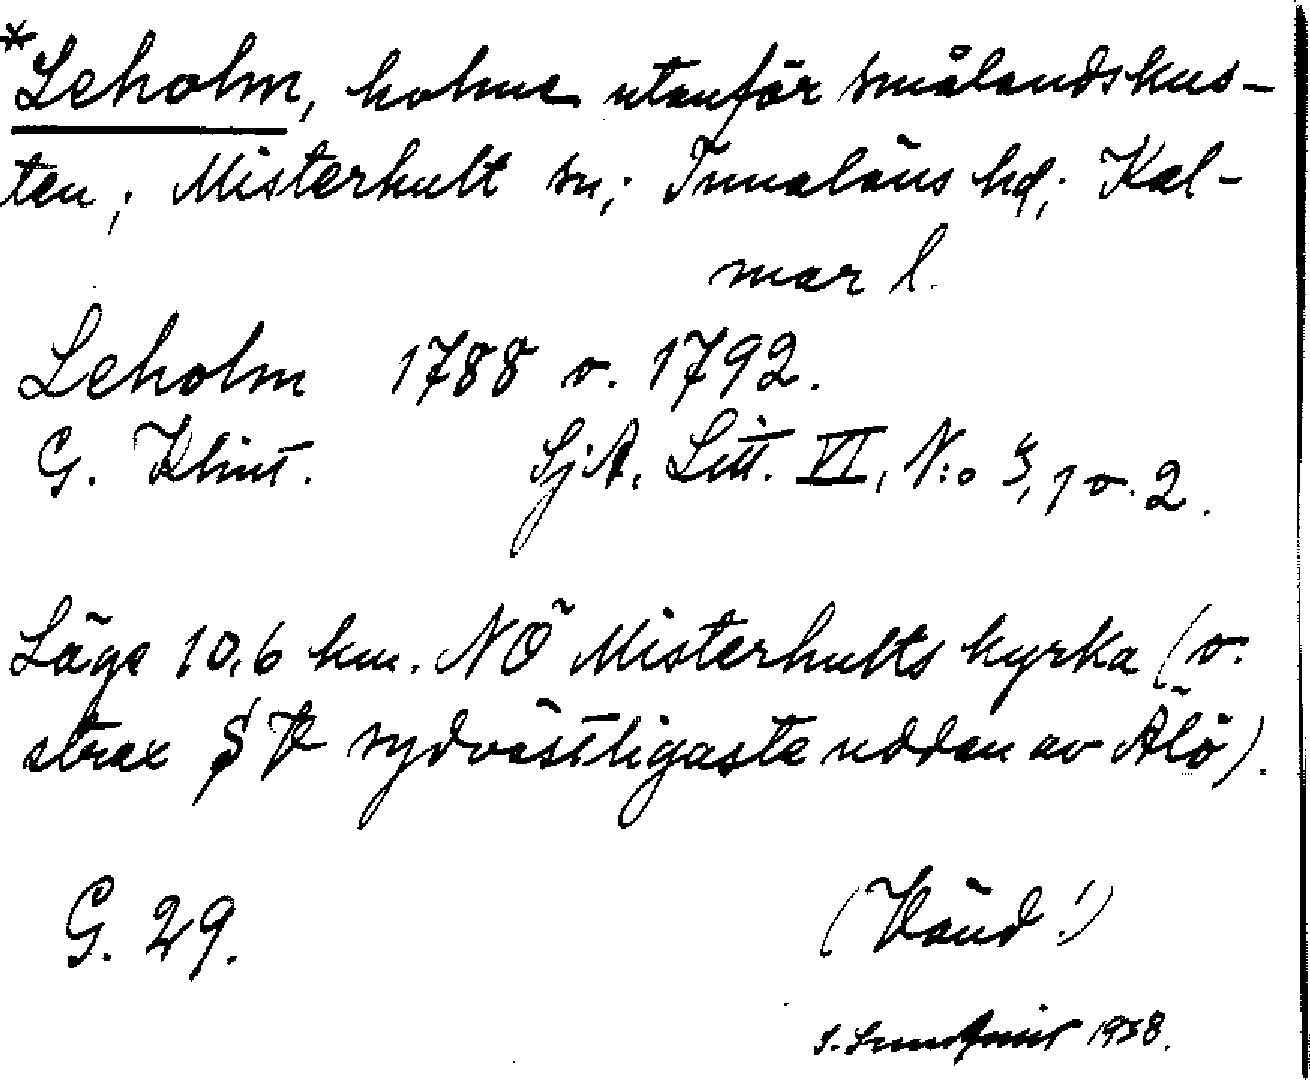 *Leholm, holme utanför smålandskus-
ten; Misterhult sn; Tunaläns hd; Kal-
mar l.
Leholm 1788 o. 1792.
G. Klint. Sj.A. Litt. VI, N:o 3, 1 o. 2.
Läge 10,6 km. NÖ Misterhults kyrka (o.
strax S V sydvästligaste udden av Älö).
G. 29.
(Vänd!)
1938.